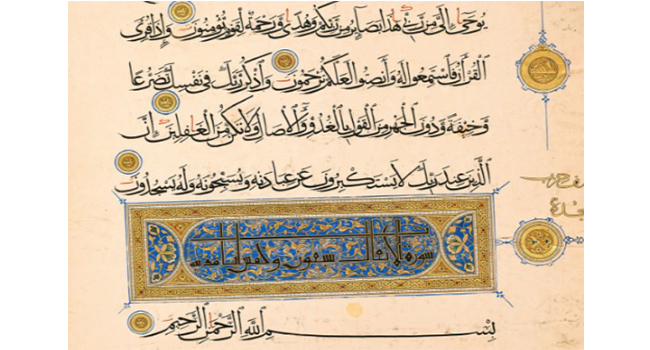 يُوحَىٰ إِلَيَّ مِن رَّبِّي هَٰذَا بَصَائِرُ مِن رَّبِّكُمْ وَهُدًى وَرَحْمَةٌ لِّقَوْمٍ يُؤْمِنُونَ وَإِذَا قُرِئَ
الْقُرْآنُ فَاسْتَمِعُوا لَهُ وَأَنصِتُوا لَعَلَّكُمْ تُرْحَمُونَ وَاذْكُر رَّبَّكَ فِي نَفْسِكَ تَضَرُّعًا
وَخِيفَةً وَدُونَ الْجَهْرِ مِنَ الْقَوْلِ بِالْغُدُوِّ وَالْآصَالِ وَلَا تَكُن مِّنَ الْغَافِلِينَ إِنَّ
الَّذِينَ عِندَ رَبِّكَ لَا يَسْتَكْبِرُونَ عَنْ عِبَادَتِهِ وَيُسَبِّحُونَهُ وَلَهُ يَسْجُدُونَ
حزب
سجدة
سورة الانفال سبعون وخمس ايات
بِسْمِ اللَّهِ الرَّحْمَٰنِ الرَّحِيمِ